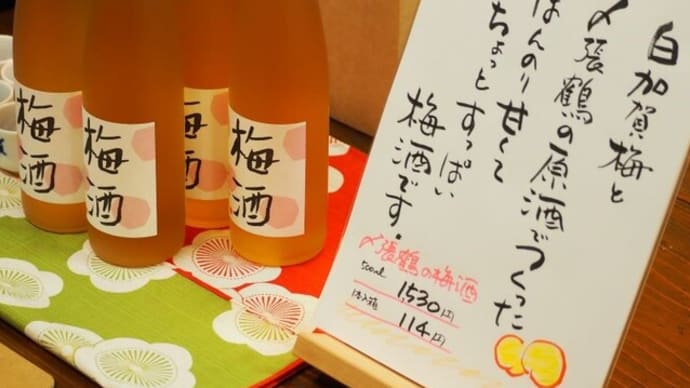 梅酒
梅酒
梅酒
梅酒
白加賀梅と
〆張鶴の原酒でつくった
ほんのり甘くて
ちょっとすっぱい
梅酒です。
〆張鶴の梅酒
500ml 1,530円
1本入箱 114円